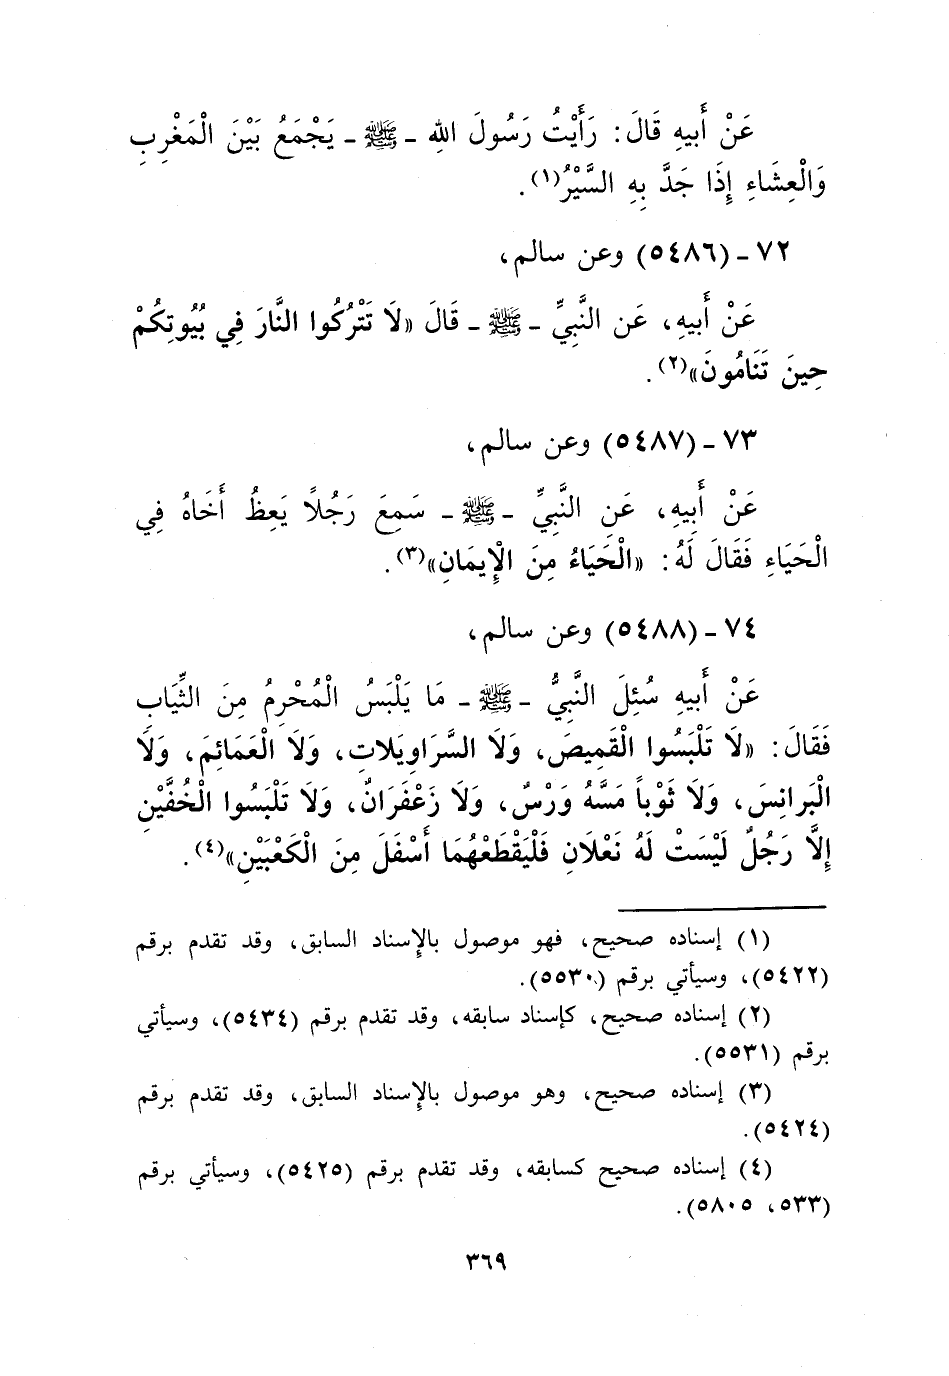 عَنْ أَبيهِ قَالَ: رَأَيْتُ رَسُولَ اللهِ ـ ﷺ ـ يَجْمَعُ بَيْنَ الْمَغْرِبِ
وَالْعِشَاءِ إِذَا جَدَّ بِهِ السَّيْرُ(١).
٧٢ ـ (٥٤٨٦) وعن سالم،
عَنْ أَبيهِ، عَن النَّبيِّ ـ ﷺ ـ قَالَ «لَا تَتْرُكُوا النَّارَ فِي بُيُوتِكُمْ
حِينَ تَنَامُونَ»(٢).
٧٣ ـ (٥٤٨٧) وعن سالم،
عَنْ أَبِيهِ، عَنِ النَّبِيِّ ـ ﷺ ـ سَمِعَ رَجُلاً يَعِظُ أَخَاهُ فِي
الْحَيَاءِ فَقَالَ لَهُ: «الْحَيَاءُ مِنَ الْإِيمَانِ»(٣).
٧٤ ـ (٥٤٨٨) وعن سالم،
عَنْ أَبيهِ سُئِلَ النَّبِيُّ ـ ﷺ ـ مَا يَلْبَسُ الْمُحْرِمُ مِنَ الثِّيَابِ
فَقَالَ: «لَا تَلْبَسُوا الْقَمِيصَ، وَلَا السَّرَاوِيَلاتِ، وَلَا الْعَمَائِمَ، وَلَا
الْبَرانِسَ، وَلَا ثَوْباً مَسَّهُ وَرْسٌ، وَلَا زَعْفَرَانٌ، وَلَا تَلْبَسُوا الْخُفَّيْنِ
إِلَّا رَجُلٌ لَيْسَتْ لَهُ نَعْلَانِ فَلْيَقْطَعْهُمَا أَسْفَلَ مِنَ الْكَعْبَيْنِ»(٤).
(١) إسناده صحيح، فهو موصول بالإسناد السابق، وقد تقدم برقم
(٥٤٢٢)، وسيأتي برقم (٥٥٣٠).
(٢) إسناده صحيح، كإسناد سابقه، وقد تقدم برقم (٥٤٣٤)، وسيأتي
برقم (٥٥٣١).
(٣) إسناده صحيح، وهو موصول بالإسناد السابق، وقد تقدم برقم
(٥٤٢٤).
(٤) إسناده صحيح كسابقه، وقد تقدم برقم (٥٤٢٥)، وسيأتي برقم
(٥٣٣، ٥٨٠٥).
٣٦٩